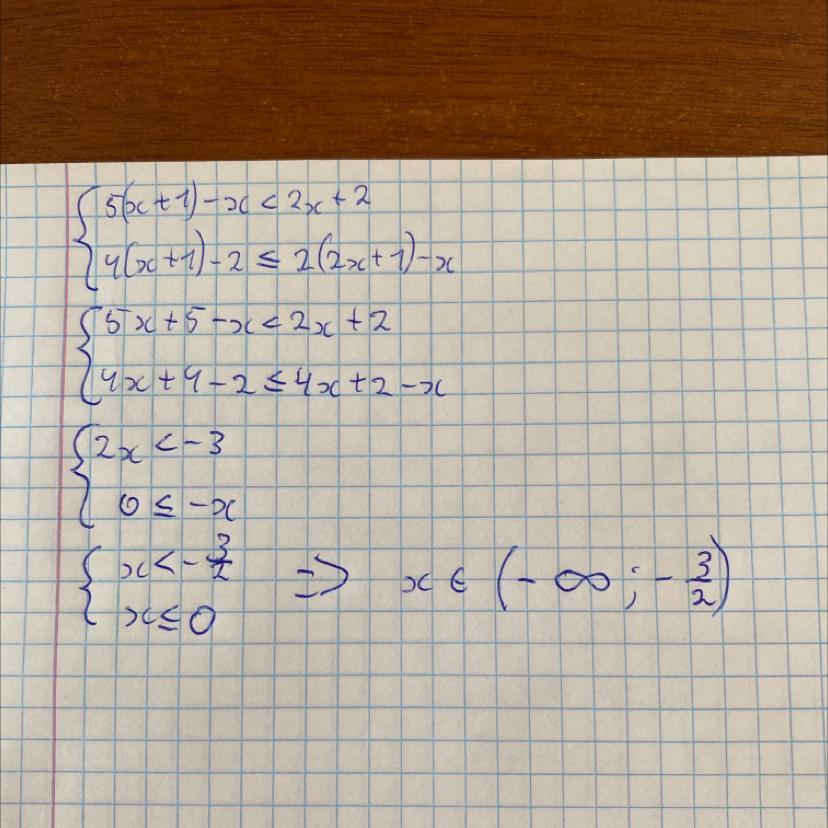 {5(x+1)-x < 2x+2
4(x+1)-2 ≤ 2(2x+1)-x
{5x+5-x < 2x+2
4x+4-2 ≤ 4x+2-x
{2x < -3
0 ≤ -x
{x < -3/2
x ≤ 0 => x ∈ (-∞; -3/2)